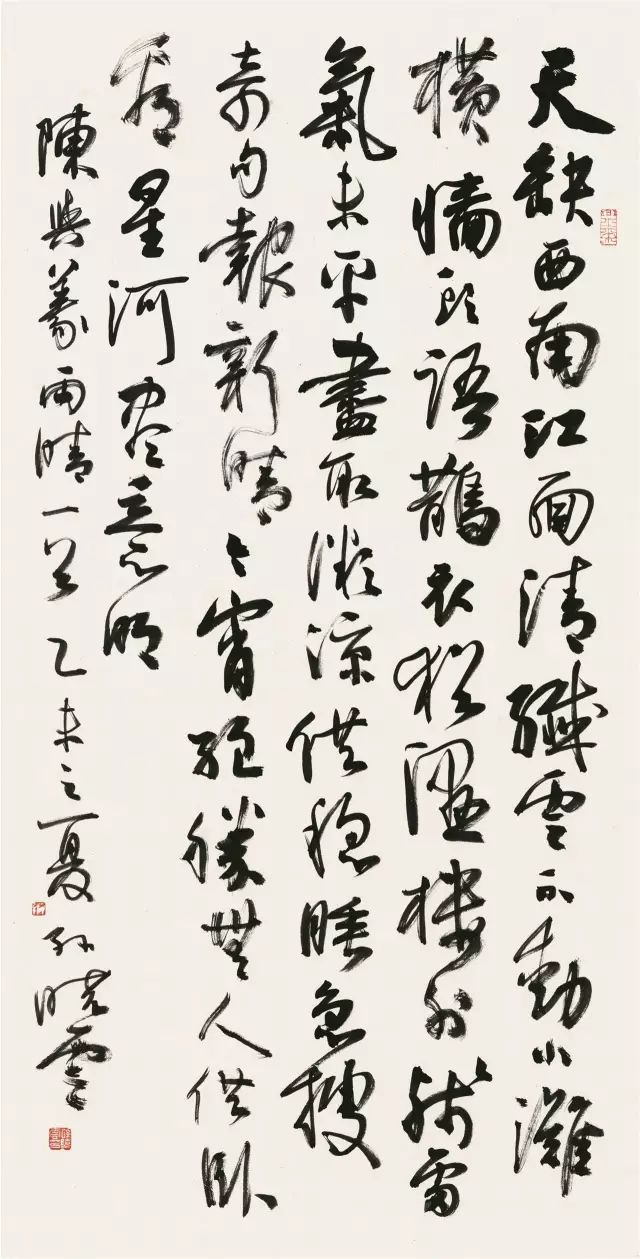 天缺西南江面清纖雲不動小灘
橫牆頭語鵲衣猶溼樓外殘雷
氣未平盡取微涼供穩睡急搜
奇句報新晴今宵絕勝無人供臥
看星河尽意明
陳與義雨晴一首乙未之夏孫曉雲